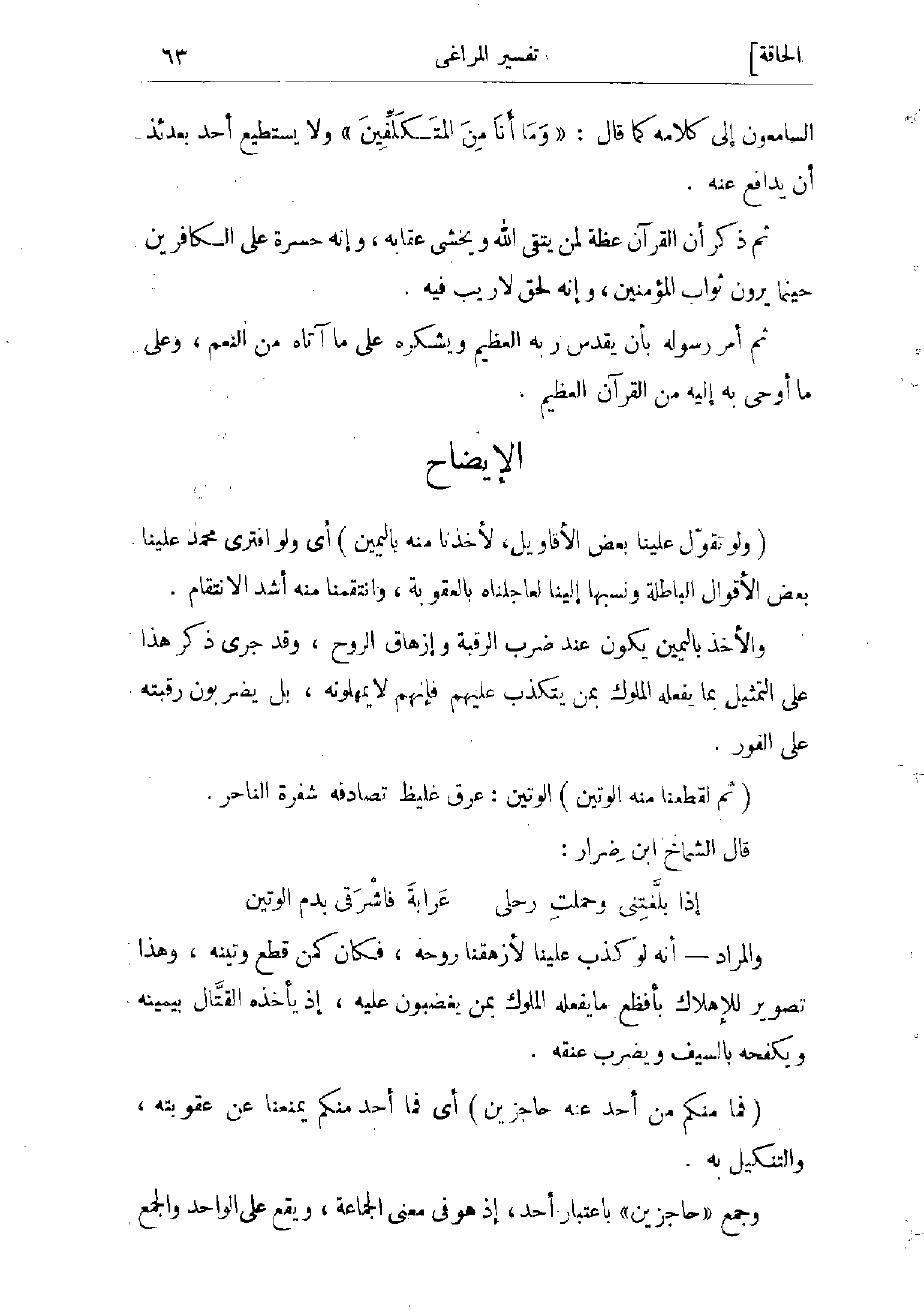 الحاقة] تفسير المراغى ٦٣
السامعون إلى كلامه كما قال : « وَمَا أَنَا مِنَ المُتَكَلِّفِينَ » ولا يستطيع أحد بعدئذ
أن يدافع عنه .
ثم ذكر أن القرآن عظة لمن يتقى الله ويخشى عقابه ، وإنه حسرة على الكافرين
حينما يرون ثواب المؤمنين ، وإنه لحق لاريب فيه .
ثم أمر رسوله بأن يقدس ربه العظيم ويشكره على ما آتاه من النعم ، وعلى
ما أوحى به إليه من القرآن العظيم .
الإيضاح
( ولو تقوّل علينا بعض الأقاويل، لأخذنا منه باليمين ) أى ولو افترى محمد علينا
بعض الأقوال الباطلة ونسبها إلينا لعاجلناه بالعقوبة ، وانتقمنا منه أشد الانتقام .
والأخذ باليمين يكون عند ضرب الرقبة وإزهاق الروح ، وقد جرى ذكر هذا
على التمثيل بما يفعله الملوك بمن يتكذب عليهم فإنهم لايمهلونه ، بل يضربون رقبته
على الفور .
( ثم لقطعنا منه الوتين ) الوتين : عرق غليظ تصادفه شفرة الناحر .
قال الشماخ ابن ضرار :
إذا بلَّغتِنى وحملتِ رحلى عَرابةَ فاشْرَقى بدم الوتين
والمراد — أنه لو كذب علينا لأزهقنا روحه ، فكان كمن قطع وتينه ، وهذا
تصوير للإهلاك بأفظع مايفعله الملوك بمن يغضبون عليه ، إذ يأخذه القتَّال بيمينه
ويكفحه بالسيف ويضرب عنقه .
( فما منكم من أحد عنه حاجزين ) أى فما أحد منكم يمنعنا عن عقوبته ،
والتنكيل به .
وجمع «حاجزين» باعتبار أحد، إذ هو فى معنى الجماعة ، ويقع على الواحد والجمع